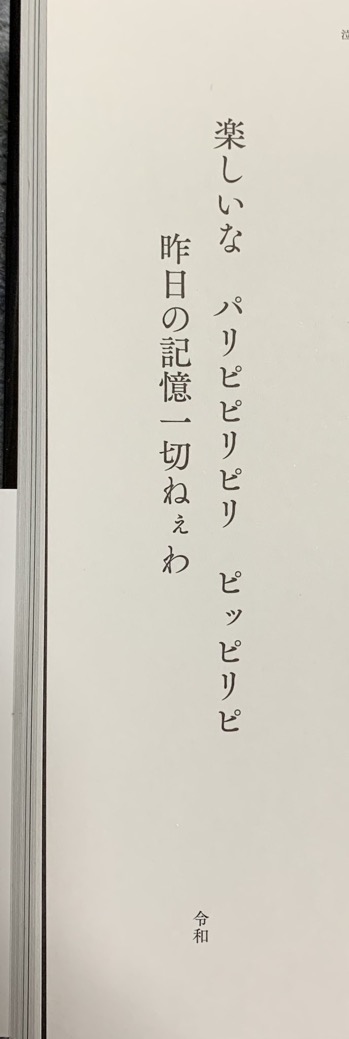 楽しいな　パリピピリピリ　ピッピリピ
昨日の記憶一切ねぇわ
令和